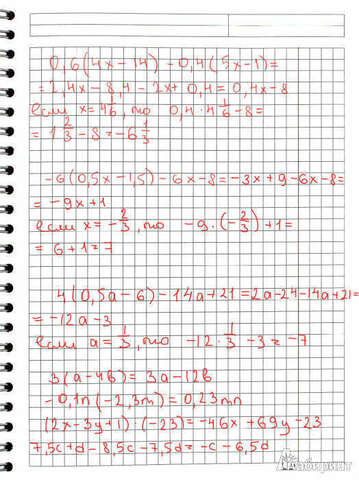 0,6(4x-14) -0,4(5x-1)=
=2,4x-8,4-2x+0,4=0,4x-8
если x=4 1/6, то 0,4·4 1/6-8=
=1 2/3-8=-6 1/3
-6(0,5x-1,5)-6x-8=-3x+9-6x-8=
=-9x+1
если x=-2/3, то -9·(-2/3)+1=
=6+1=7
4(0,5a-6)-14a+21=2a-24-14a+21=
=-12a-3
если a=1/3, то -12·1/3-3=-7
3(a-4b)=3a-12b
-0,1n(-2,3m)=0,23mn
(2x-3y+1)·(-23)=-46x+69y-23
7,5c+d-8,5c-7,5d=-c-6,5d
Лабиринт